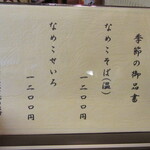 季節の御品書
なめこそば(温)
一二〇〇円
なめこせいろ
一二〇〇円